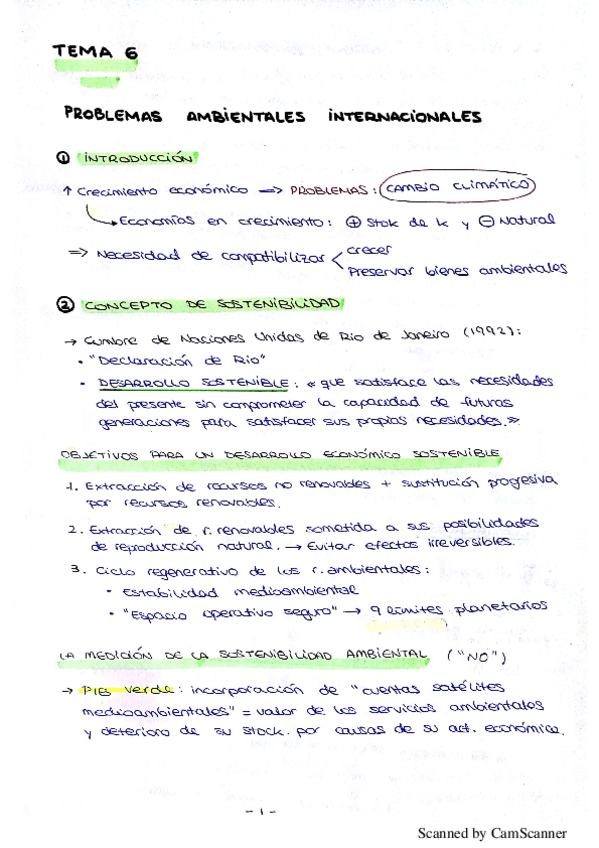 TEMA 6
PROBLEMAS AMBIENTALES INTERNACIONALES
① INTRODUCCIÓN
↑ Crecimiento económico => PROBLEMAS: CAMBIO CLIMÁTICO
Economías en crecimiento: ⊕ Stok de k y ⊖ Natural
=> Necesidad de compatibilizar < crecer
Preservar bienes ambientales
② CONCEPTO DE SOSTENIBILIDAD
→ Cumbre de Naciones Unidas de Rio de Janeiro (1992):
• "Declaración de Rio"
• DESARROLLO SOSTENIBLE: «que satisface las necesidades
del presente sin comprometer la capacidad de futuras
generaciones para satisfacer sus propias necesidades.»
OBJETIVOS PARA UN DESARROLLO ECONÓMICO SOSTENIBLE
1. Extracción de recursos no renovables + sustitución progresiva
por recursos renovables.
2. Extracción de r. renovables sometida a sus posibilidades
de reproducción natural. → Evitar efectos irreversibles.
3. Ciclo regenerativo de los r. ambientales:
• Estabilidad medioambiental
• "Espacio operativo seguro" → 9 límites planetarios
LA MEDICIÓN DE LA SOSTENIBILIDAD AMBIENTAL ("NO")
→ PIB Verde: incorporación de "cuentas satélites
medioambientales" = valor de los servicios ambientales
y deterioro de su stock. por causas de su act. económica.
- 1 -
Scanned by CamScanner